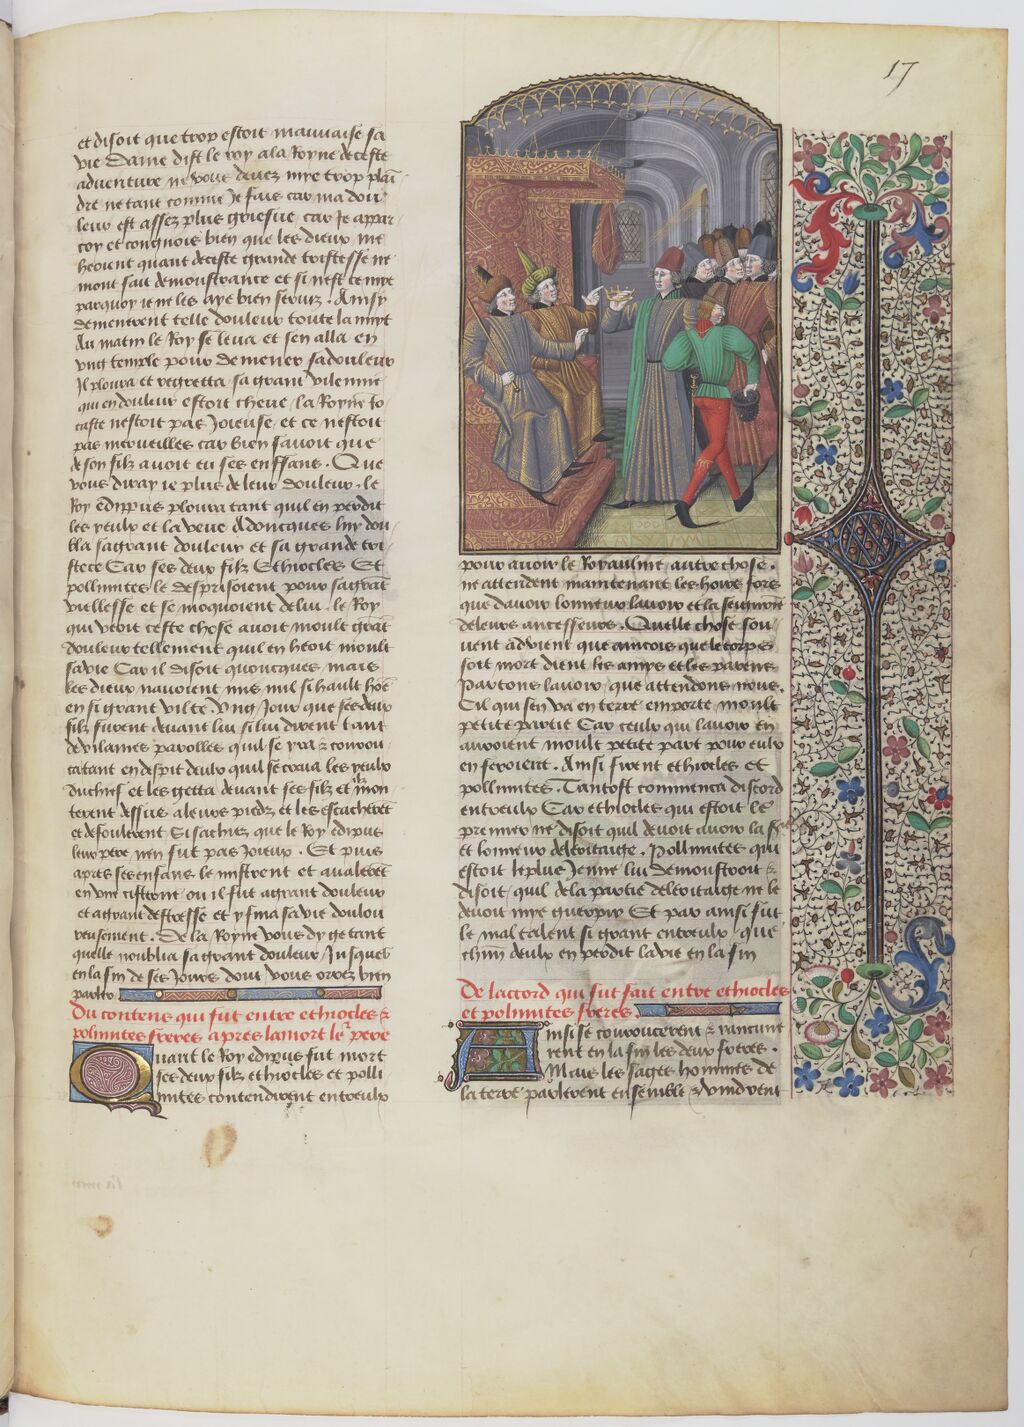 17
et disoit que trop estoit mauuaise sa
vie Dame dist le roy a la Royne de ceste
aduenture ne vous deuez mye trop plai
dre ne tant comme Je fais car ma dou
leur est assez plus griesue car Je appar
coy et congnois bien que les dieux me
heoient quant de ceste grande tristesse ne
mont fait demonstrance et si nest ce mye
parquoy ie ne les aye bien seruiz . Ainsy
demenerent telle douleur toute la nuyt
Au matin le Roy se leua et sen alla en
vng temple pour demener sa douleur
Il ploura et regretta sa grant vilennie
qui en douleur estoit cheue . la Royne Io
caste nestoit pas Joieuse . et ce nestoit
pas merueilles car bien sauoit que
de son filz auoit eu ses enffans . Que
vous diray ie plus de leur douleur . le
Roy edippus ploura tant quil en perdit
les yeulx et la veue Adoncques luy dou
bla sa grant douleur et sa grande tri
stece Car ses deux filz Ethiocles Et
pollinites le desprisoient pour sa grat
viellesse et se moquoient de lui . le Roy
qui veoit ceste chose auoit moult grat
douleur tellement quil en heoit moult
sa vie Car il disoit quoncques mais
les dieux nauoient mis nul si hault hoe
en si grant vilte Vng Jour que ses deux
filz furent deuant lui si lui dirent tant
de vilaines parolles quil se yra &
en despit deulx quil se creua les yeulx
du chief et les getta deuant ses filz et ilz mon
terent dessus a leurs piedz et les escacherent
et defoulerent Si sachiez que le Roy edipus
leur pere nen fut pas Joieux . Et puis
apres ses enfans le mistrent et aualerent
en vne cisterne ou il fut a grant douleur
et a grant destresse et y fina sa vie doulou
reusement . De la Royne vous dy ge tant
quelle noublia sa grant douleur Jusques
en la fin de ses Jours dont vous orrez bien
parler
Du contens qui fut entre ethiocles &
polinites freres apres la mort le pere
Quant le Roy edipus fut mort
ses deux filz ethiocles et polli
nites contendirent entreulx
pour auoir le Royaulme autre chose .
ne attendent maintenant les hoirs fors
que dauoir lonneur lauoir et la seignorie
de leurs ancesseurs . Quelle chose sou
uent aduient que aincois que le corps
soit mort dient les amys et les parens
Partons lauoir , que attendons nous .
Cil qui sen va en terre emporte moult
petite partie Car ceulx qui lauoir en
auroient moult petite part pour eulx
en feroient . Ainsi firent ethiocles et
pollinites . Tantost commenca discord
entreulx Car ethiocles qui estoit le
premier ne disoit quil deuoit auoir la
et lonneur de leritaige . Pollinites qui
estoit le plus Jenne lui demonstroit &
disoit , quil de la partie de leritaige ne le
deuoit mye guerpir Et par ainsi fut
le mal talent si grant entreulx que
chun deulx en perdit la vie en la fin
De laccord qui fut fait entre ethiocles
et polinites freres .
Ainsi se courroucerent & rancune
rent en la fin les deux freres .
Mais les sages hommes de
la terre parlerent ensemble & vindrent